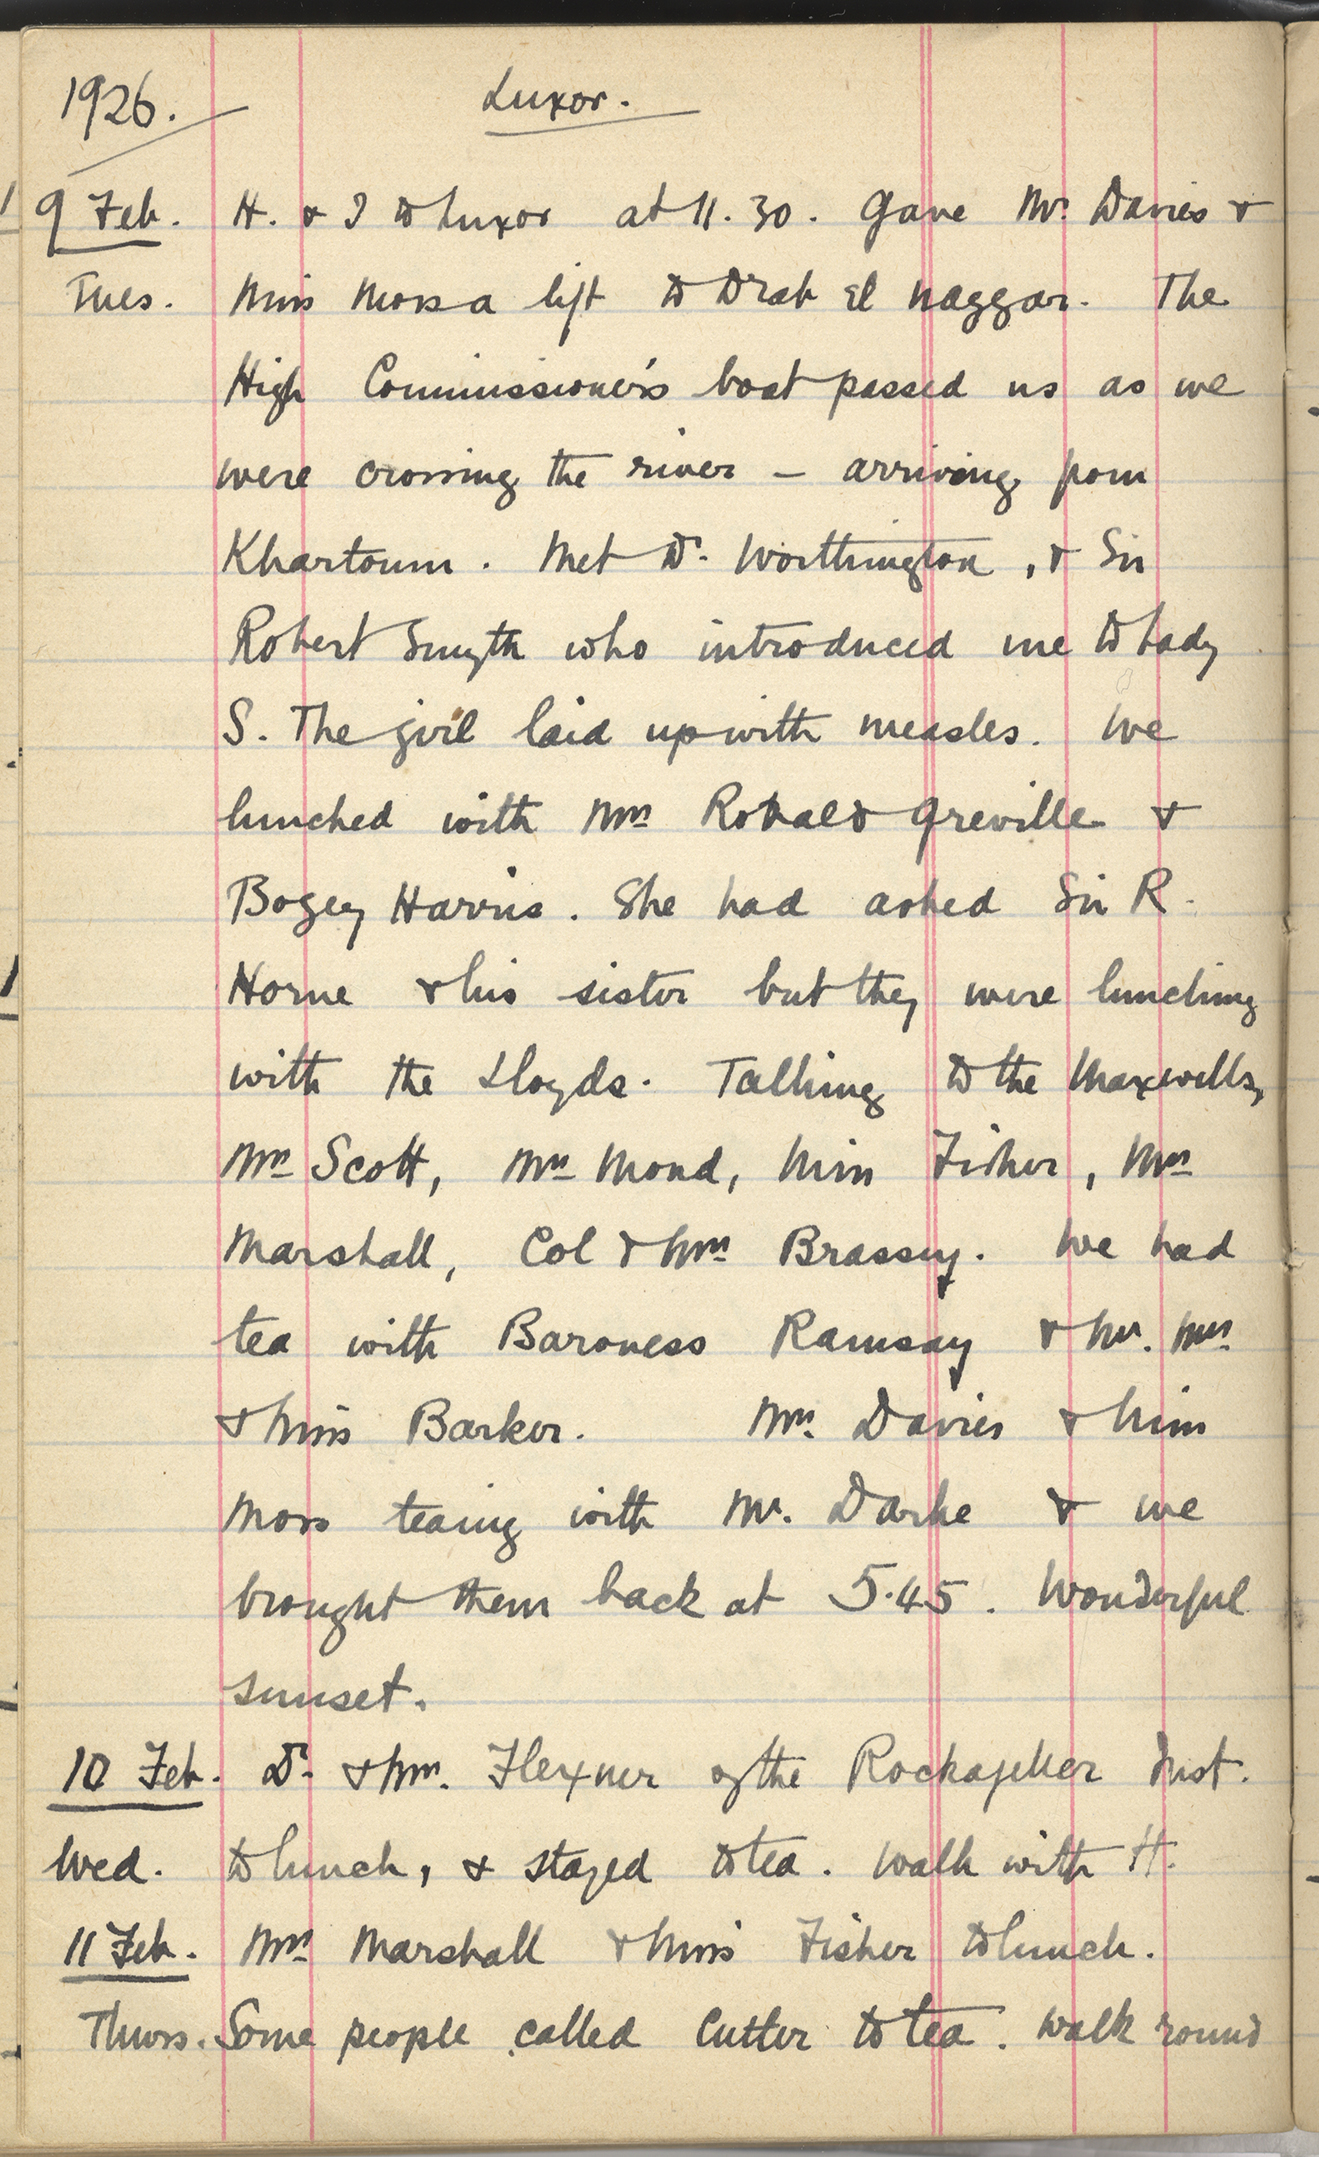 1926. Luxor.
9 Feb. H. & I to Luxor at 11.30. Gave Mr. Davies &
Tues. Miss Moss a lift to Drah el Naggar. The
High Commissioner's boat passed us as we
were crossing the river – arriving from
Khartoum. Met Dr. Worthington, & Sir
Robert Smyth who introduced me to Lady
S. The girl laid up with measles. We
lunched with Mrs Ronald Greville &
Bogey Harris. She had asked Sir R.
Horne & his sister but they were lunching
with the Lloyds. Talking to the Maxwells,
Mrs Scott, Mrs Mond, Miss Fisher, Mrs
Marshall, Col & Mrs Brassey. We had
tea with Baroness Ramsay & Mr. Mrs
& Miss Barker. Mrs. Davies & Miss
Moss teaing with Mr. Darke & we
brought them back at 5.45. Wonderful
sunset.
10 Feb. Dr. & Mrs. Flexner of the Rockafeller Inst.
Wed. to lunch, & stayed to tea. Walk with H.
11 Feb. Mrs Marshall & Miss Fisher to lunch.
Thurs. Some people called Cutter to tea. Walk round